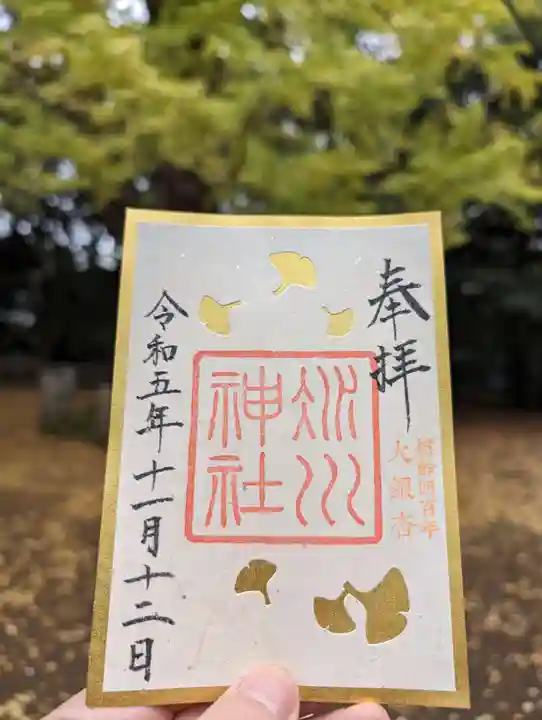 奉拝
樹齢四百年
大銀杏
氷川
神社
令和五年十一月十二日